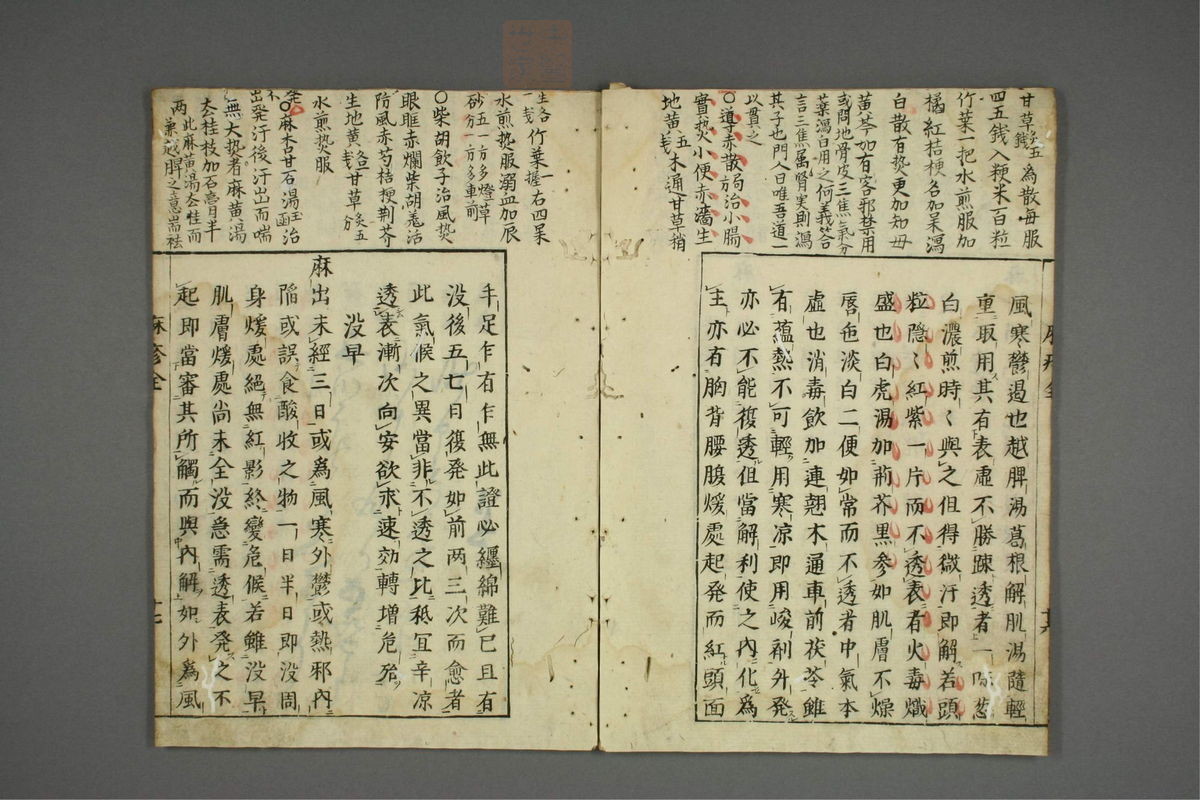 甘草五錢爲散每服
四五錢入粳米百粒
竹葉一把水煎服加
橘紅桔梗各加杲瀉
白散有热更加知母
黄芩加有客邪禁用
或問地骨皮三焦氣分
藥瀉白用之何義答
言三焦属腎実則瀉
其子也門人曰唯吾道一
以貫之
○導赤散局治小腸
實热小便赤濇生
地黄五木通甘草稍
風寒鬱遏也越脾湯葛根解肌湯隨輕
重取用其有表虛不勝踈透者一味葱
白濃煎時〻與之但得微汗即解若頭
粒隐〻紅紫一片而不透表者火毒熾
盛也白虎湯加荊芥黒參如肌膚不燥
唇色淡白二便如常而不透者中氣本
虛也消毒飲加連翹木通車前茯苓雖
有蕴熱不可輕用寒凉即用峻剤外発
亦必不能復透但當解利使之內化爲
主亦有胸背腰腹煖處起発而紅頭面
生各竹葉一握右四杲
水煎热服溺血加辰
砂五分一方多燈草一方多車前
○柴胡飲子治風热
眼眶赤爛柴胡羌活
防風赤芍桔梗荆芥
生地黄甘草炙五分
水煎热服
○麻杏甘石湯玉函治
出発汗後汗出而喘
無大热者麻黄湯
去桂枝加石膏月半
此麻黄湯去桂而
兼越脾之意耑祛
手足乍有乍無此證必纒綿難已且有
没後五七日復発如前两三次而愈者
此氣候之異當非不透之比秪宜辛凉
透表漸次向安欲求速効轉增危殆
没早
麻出未經三日或爲風寒外鬱或熱邪內
陷或誤食酸收之物一日半日即没周
身煖處絕無紅影終變危候若雖没早
肌膚煖處尚未全没急需透表発之不
起即當審其所觸而與內解如外爲風